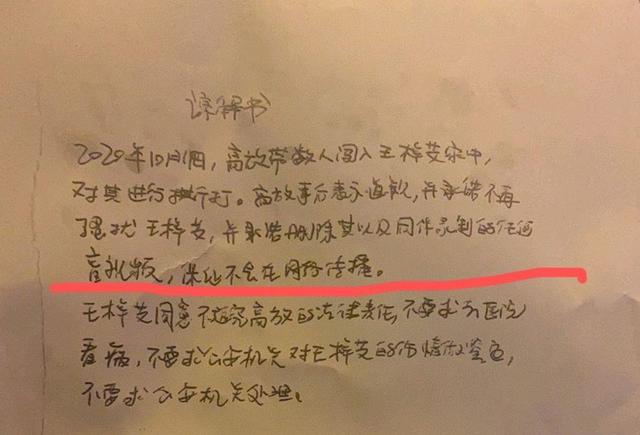 谅解书
2020年10月1日，高放带数人闯入王梓艾家中，
对其进行殴打。高放事后表示道歉，并承诺不再
骚扰王梓艾，并承诺删除其以及同伴录制的任何
音视频，保证不会在网络传播。
王梓艾同意不追究高放的法律责任，不要求到医院
看病，不要求公安机关对王梓艾的伤情做鉴定，
不要求公安机关处理。